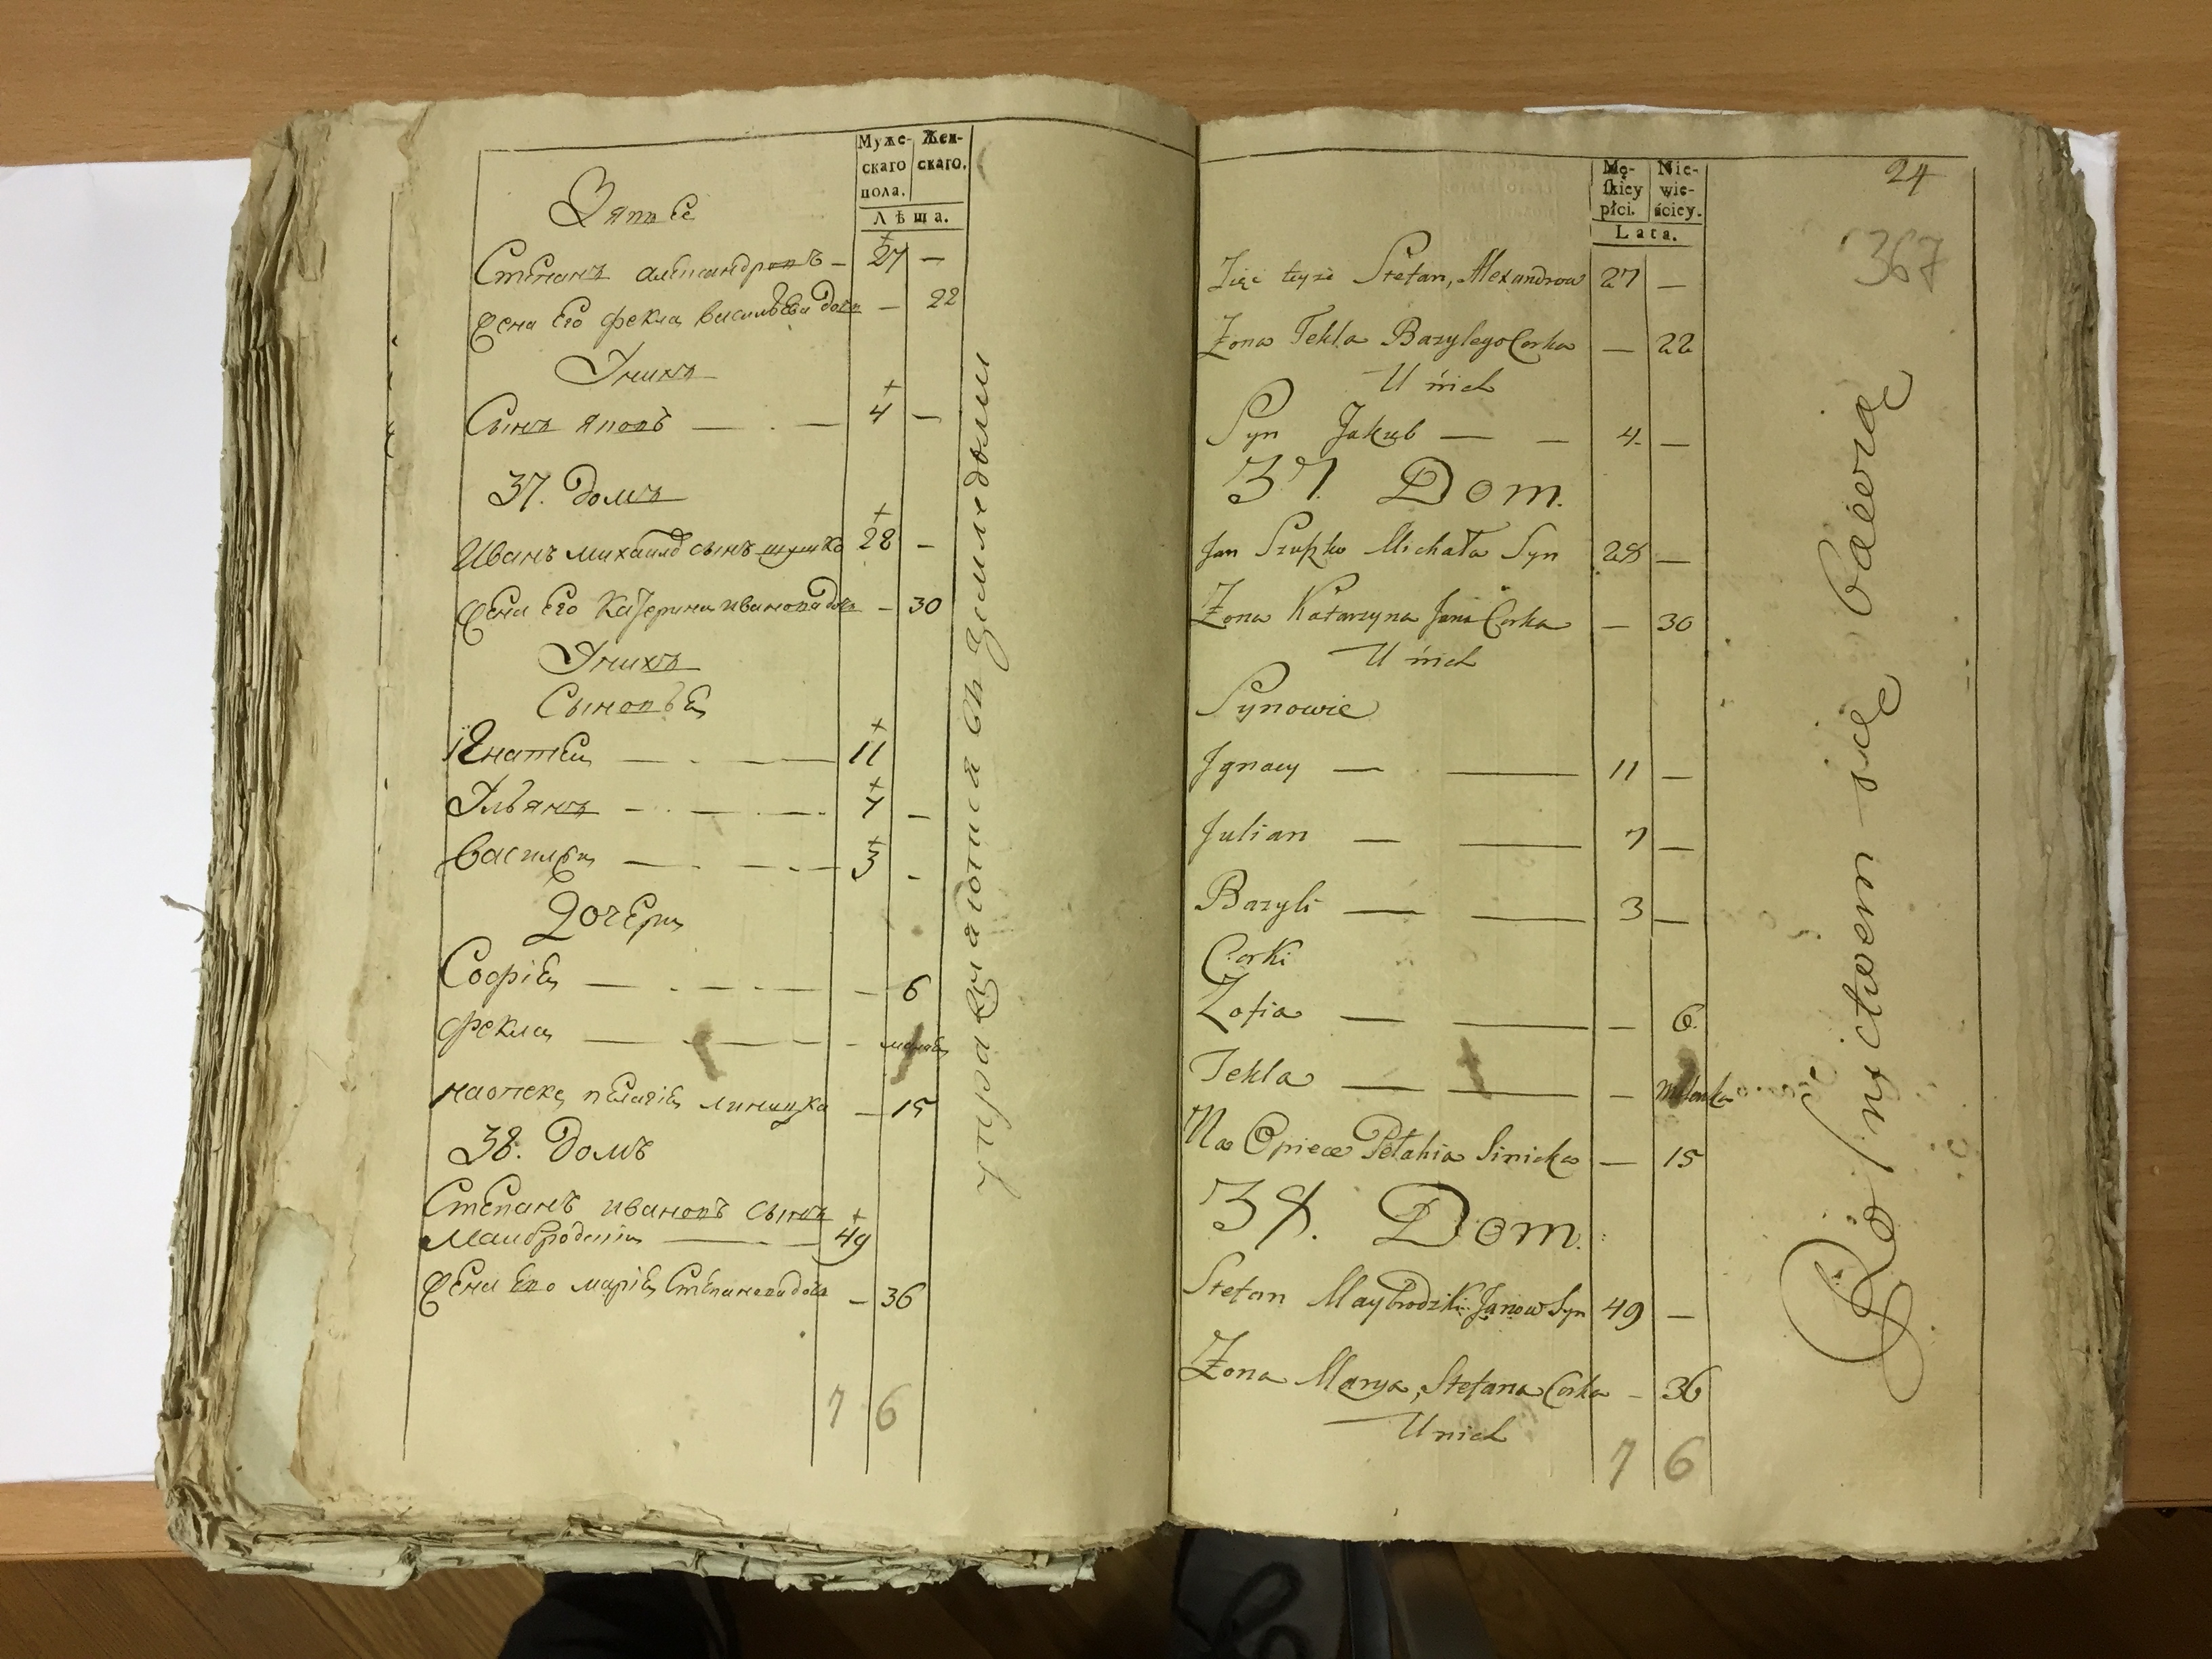 Муже-
скаго
пола.
Жен-
скаго.
Лѣта.
Зять Ее
Степанъ Александровъ — 27 —
Жена Его Фекла Васильева дочь — 22
У нихъ
Сынъ Яковъ — 4 —
37. Домъ
Иванъ Михайлов сынъ Шупко 28 —
Жена Его Катерина Иванова дочь — 30
У нихъ
Сыновья
Игнатей — 11
Ульянъ — 7 —
Василей — 3 —
Дочери
Софія — 6
Фекла —
на опеке Пелагія Линицка — 15
38. Домъ
Степанъ Ивановъ сынъ
Маибродскій — 49
Жена Его Марія Степанова дочь — 36
7 6
упражняются въ земледеліи
Mę-
skiey
płci.
Nie-
wie-
ściey.
Lata.
24
367
Zięć teyże Stefan, Alexandrow 27 —
Żona Tekla Bazylego Corka — 22
U nich
Syn Jakub — — 4 —
37. Dom.
Jan Szupko Michała Syn 28 —
Żona Katarzyna Jana Corka — 30
U nich
Synowie
Jgnacy — — 11 —
Julian — — 7 —
Bazyli — — 3 —
Corki
Zofia — — — 6
Tekla — — —
Na Opiece Pelahia Linicka — 15
38. Dom.
Stefan Maybrodzki Janow Syn 49 —
Żona Marya, Stefana Corka — 36
U nich
7 6
Rolnictwem się bawią